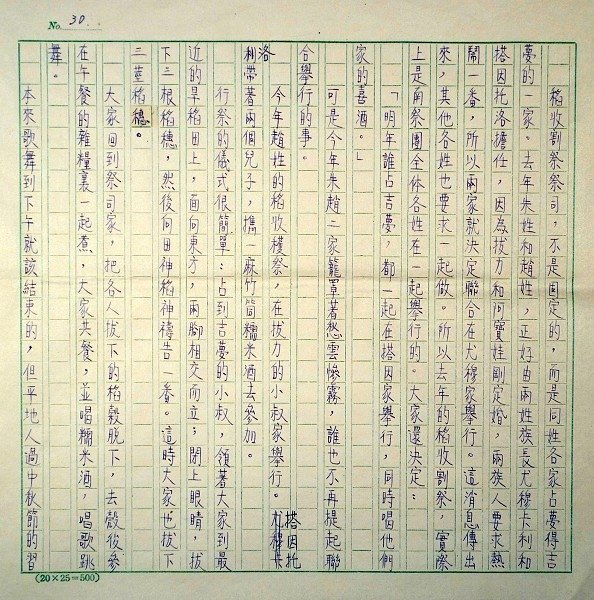 No. 30.
稻收割祭祭司，不是固定的，而是同姓各家占夢得吉
夢的一家。去年朱姓和趙姓，正好由兩姓族長尤穆卡利和
搭因托洛擔任，因為拔力和阿寶娃剛定婚，兩族人要求熱
鬧一番，所以兩家就決定聯合在尤穆家舉行。這消息傳出
來，其他各姓也要求一起做。所以去年的稻收割祭，實際
上是南祭團全体各姓在一起舉行的。大家還決定：
「明年誰占吉夢，都一起在搭因家舉行，同時喝他們
家的喜酒。」
可是今年朱趙二家籠罩著愁雲慘霧，誰也不再提起聯
合舉行的事。
今年趙姓的稻收穫祭，在拔力的小叔家舉行。搭因托
洛帶著兩個兒子，攜一麻竹筒糯米酒去參加。
行祭的儀式很簡單：占到吉夢的小叔，領著大家到最
近的旱稻田上，面向東方，兩腳相交而立；閉上眼睛，拔
下三根稻穗，然後向田神稻神禱告一番。這時大家也拔下
三莖稻穗。
大家回到祭司家，把各人拔下的稻穀脫下，去殼後參
在午餐的雜糧裏一起煮，大家共餐，並喝糯米酒，唱歌跳
舞。
本來歌舞到下午就該結束的，但平地人過中秋節的習
(20×25=500)